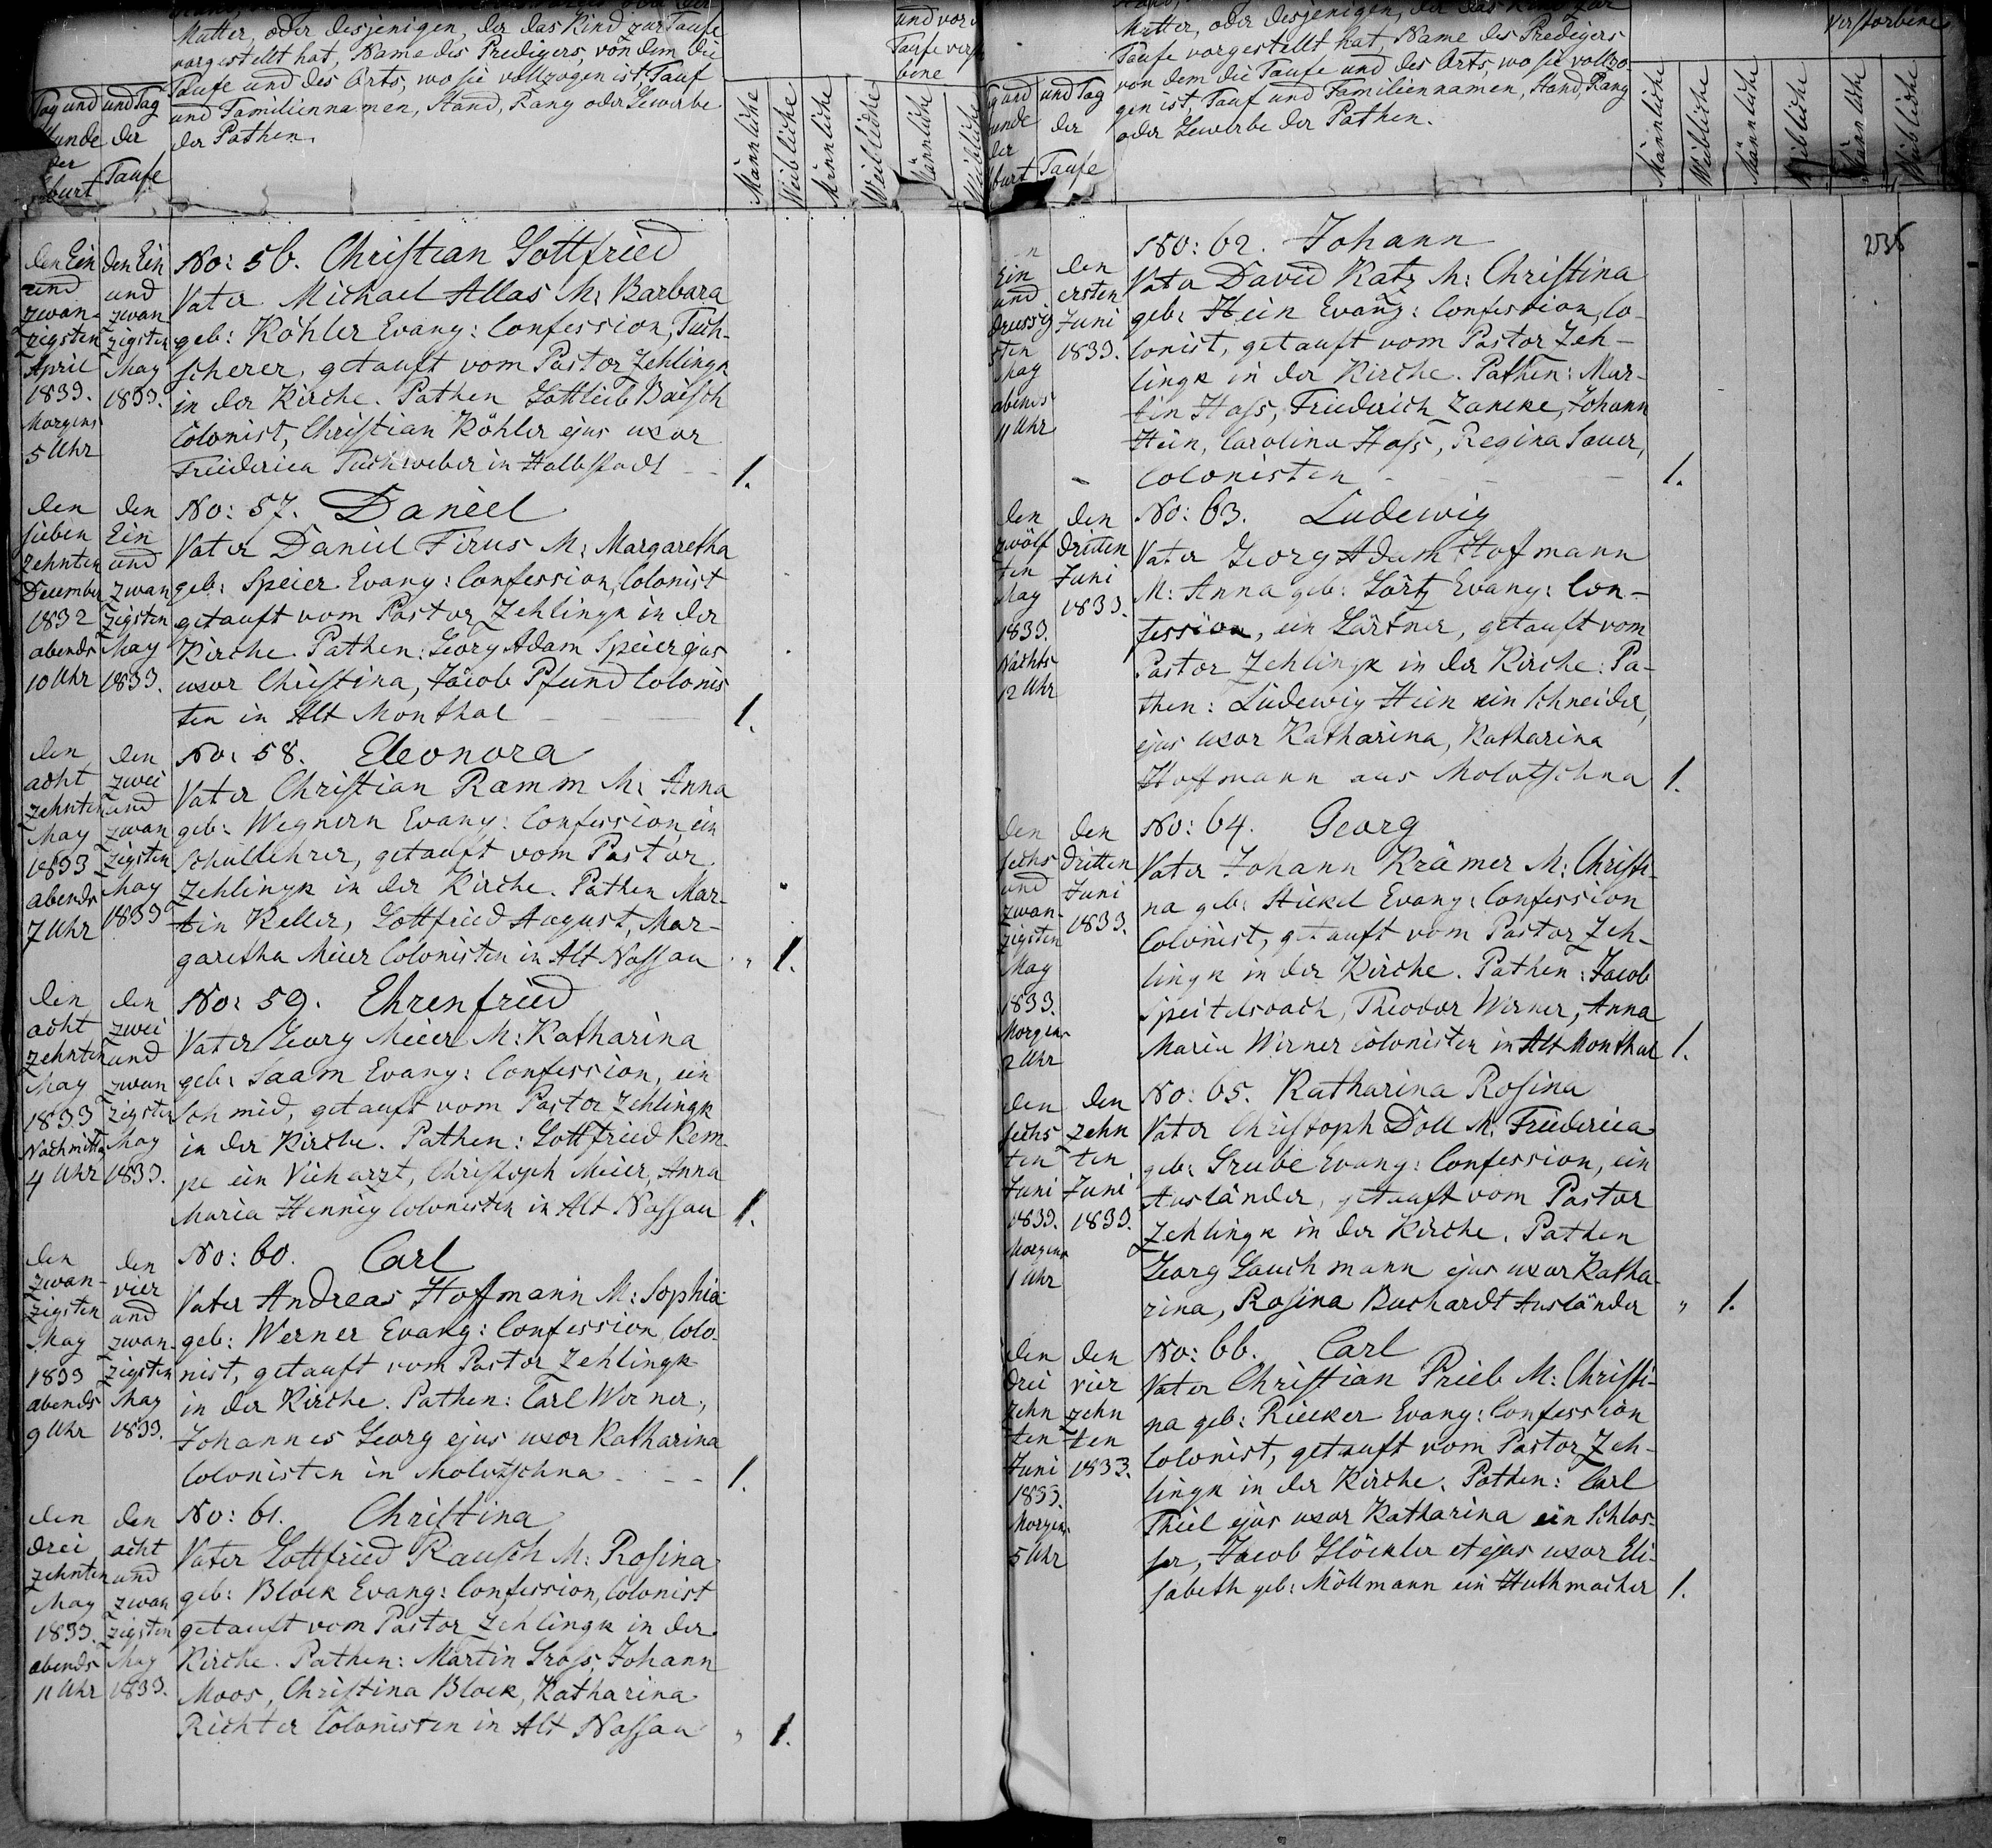 Mutter, oder desjenigen, der das Kind zur Taufe
vorgestellt hat, Name des Predigers, von dem die
Taufe und des Orts, wo sie vollzogen ist, Tauf
und Familiennamen, Stand, Rang oder Gewerbe
der Pathen.
Tag und
Stunde
der
Geburt
und Tag
der
Taufe
und vor
Taufe
bine
Männliche
Weibliche
Männliche
Weibliche
Männliche
Weibliche
den Ein
und
zwan-
zigsten
April
1833.
Morgens
5 Uhr
den Ein
und
zwan-
zigsten
May
1833.
No: 56. Christian Gottfried
Vater Michael Allas M: Barbara
geb: Köhler Evang: Confession, Tuch-
scherer, getauft vom Pastor Zehlingk
in der Kirche. Pathen Gottlieb Baisch
Colonist, Christian Köhler ejus uxor
Friederica Tuchweber in Halbstadt
1.
den
sieben
zehnten
December
1832
abends
10 Uhr
den
Ein
und
zwan
zigsten
May
1833.
No: 57. Daniel
Vater Daniel Firus M: Margaretha
geb: Speier Evang: Confession, Colonist
getauft vom Pastor Zehlingk in der
Kirche. Pathen: Georg Adam Speier ejus
uxor Christina, Jacob Pfund Colonis
ten in Alt Monthal
1.
den
acht
zehnten
May
1833
abends
7 Uhr
den
zwei
und
zwan
zigsten
May
1833
No: 58. Eleonora
Vater Christian Ramm M: Anna
geb: Wegnern Evang: Confession, ein
Schullehrer, getauft vom Pastor
Zehlingk in der Kirche. Pathen Mar-
tin Keller, Gottfried August, Mar-
garetha Meier Colonisten in Alt Nassau
" 1.
den
acht
zehnten
May
1833
Nachmittag
4 Uhr
den
zwei
und
zwan
zigsten
May
1833.
No: 59. Ehrenfried
Vater Georg Meier M: Katharina
geb: Saam Evang: Confession, ein
Schmid, getauft vom Pastor Zehlingk
in der Kirche. Pathen: Gottfried Rem
pe ein Vieharzt, Christoph Meier, Anna
Maria Hennig Colonisten in Alt Nassau
1.
den
zwan-
zigsten
May
1833
abends
9 Uhr
den
vier
und
zwan-
zigsten
May
1833.
No: 60. Carl
Vater Andreas Hoffmann M: Sophia
geb: Werner Evang: Confession, Colo-
nist, getauft vom Pastor Zehlingk
in der Kirche. Pathen: Carl Werner,
Johannes Georg ejus uxor Katharina
Colonisten in Molotschna
1.
den
drei
zehnten
May
1833.
abends
11 Uhr
den
acht
und
zwan
zigsten
May
1833.
No: 61. Christina
Vater Gottfried Rausch M: Rosina
geb: Block Evang: Confession, Colonist
getauft vom Pastor Zehlingk in der
Kirche. Pathen: Martin Gross, Johann
Moos, Christina Block, Katharina
Richter Colonisten in Alt Nassau
" 1.
Mutter, oder desjenigen, der das Kind zur
Taufe vorgestellt hat, Name des Predigers
von dem die Taufe und des Orts, wo sie vollzo-
gen ist, Tauf und Familiennamen, Stand, Rang
oder Gewerbe der Pathen.
und Tag
der
Taufe
Verstorbene
Männliche
Weibliche
Männliche
Weibliche
Männliche
Weibliche
235
Ein
und
dreissig
sten
May
abends
11 Uhr
den
ersten
Juni
1833.
No: 62. Johann
Vater David Katz M: Christina
geb: Hein Evang: Confession, Co-
lonist, getauft vom Pastor Zeh-
lingk in der Kirche. Pathen: Mar-
tin Hass, Friedrich Zancke, Johann
Hein, Carolina Hass, Regina Sauer,
Colonisten
1.
den
zwölf
ten
May
1833.
Nachts
12 Uhr
den
dritten
Juni
1833.
No: 63. Ludewig
Vater Georg Adam Hofmann
M: Anna geb: Görtz Evang: Con-
fession, ein Gärtner, getauft vom
Pastor Zehlingk in der Kirche: Pa-
then: Ludewig Hein ein Schneider,
ejus uxor Katharina, Katharina
Hoffmann aus Molotschna
1.
den
sechs
und
zwan-
zigsten
May
1833.
Morgens
2 Uhr
den
dritten
Juni
1833.
No: 64. Georg
Vater Johann Krämer M: Christi-
na geb: Stickel Evang: Confession
Colonist, getauft vom Pastor Zeh-
lingk in der Kirche. Pathen: Jacob
Theodor Werner, Anna
Maria Werner Colonisten in Alt Monthal
1.
den
sechs
ten
Juni
1833.
Morgens
1 Uhr
den
zehn
ten
Juni
1833.
No: 65. Katharina Rosina
Vater Christoph Doll M: Friederica
geb: Greube Evang: Confession, ein
Ausländer, getauft vom Pastor
Zehlingk in der Kirche. Pathen
Georg Lauchmann ejus uxor Katha-
rina, Rosina Buchardt Ausländer
" 1.
den
drei
zehn
ten
Juni
1833.
Morgens
5 Uhr
den
vier
zehn
ten
1833.
No: 66. Carl
Vater Christian Prieb M: Christi-
na geb: Riecker Evang: Confession
Colonist, getauft vom Pastor Zeh-
lingk in der Kirche. Pathen: Carl
Thiel ejus uxor Katharina ein Schlos-
ser, Jacob Glöckler et ejus uxor Eli-
sabeth geb: Möllmann ein Huthmacher
1.